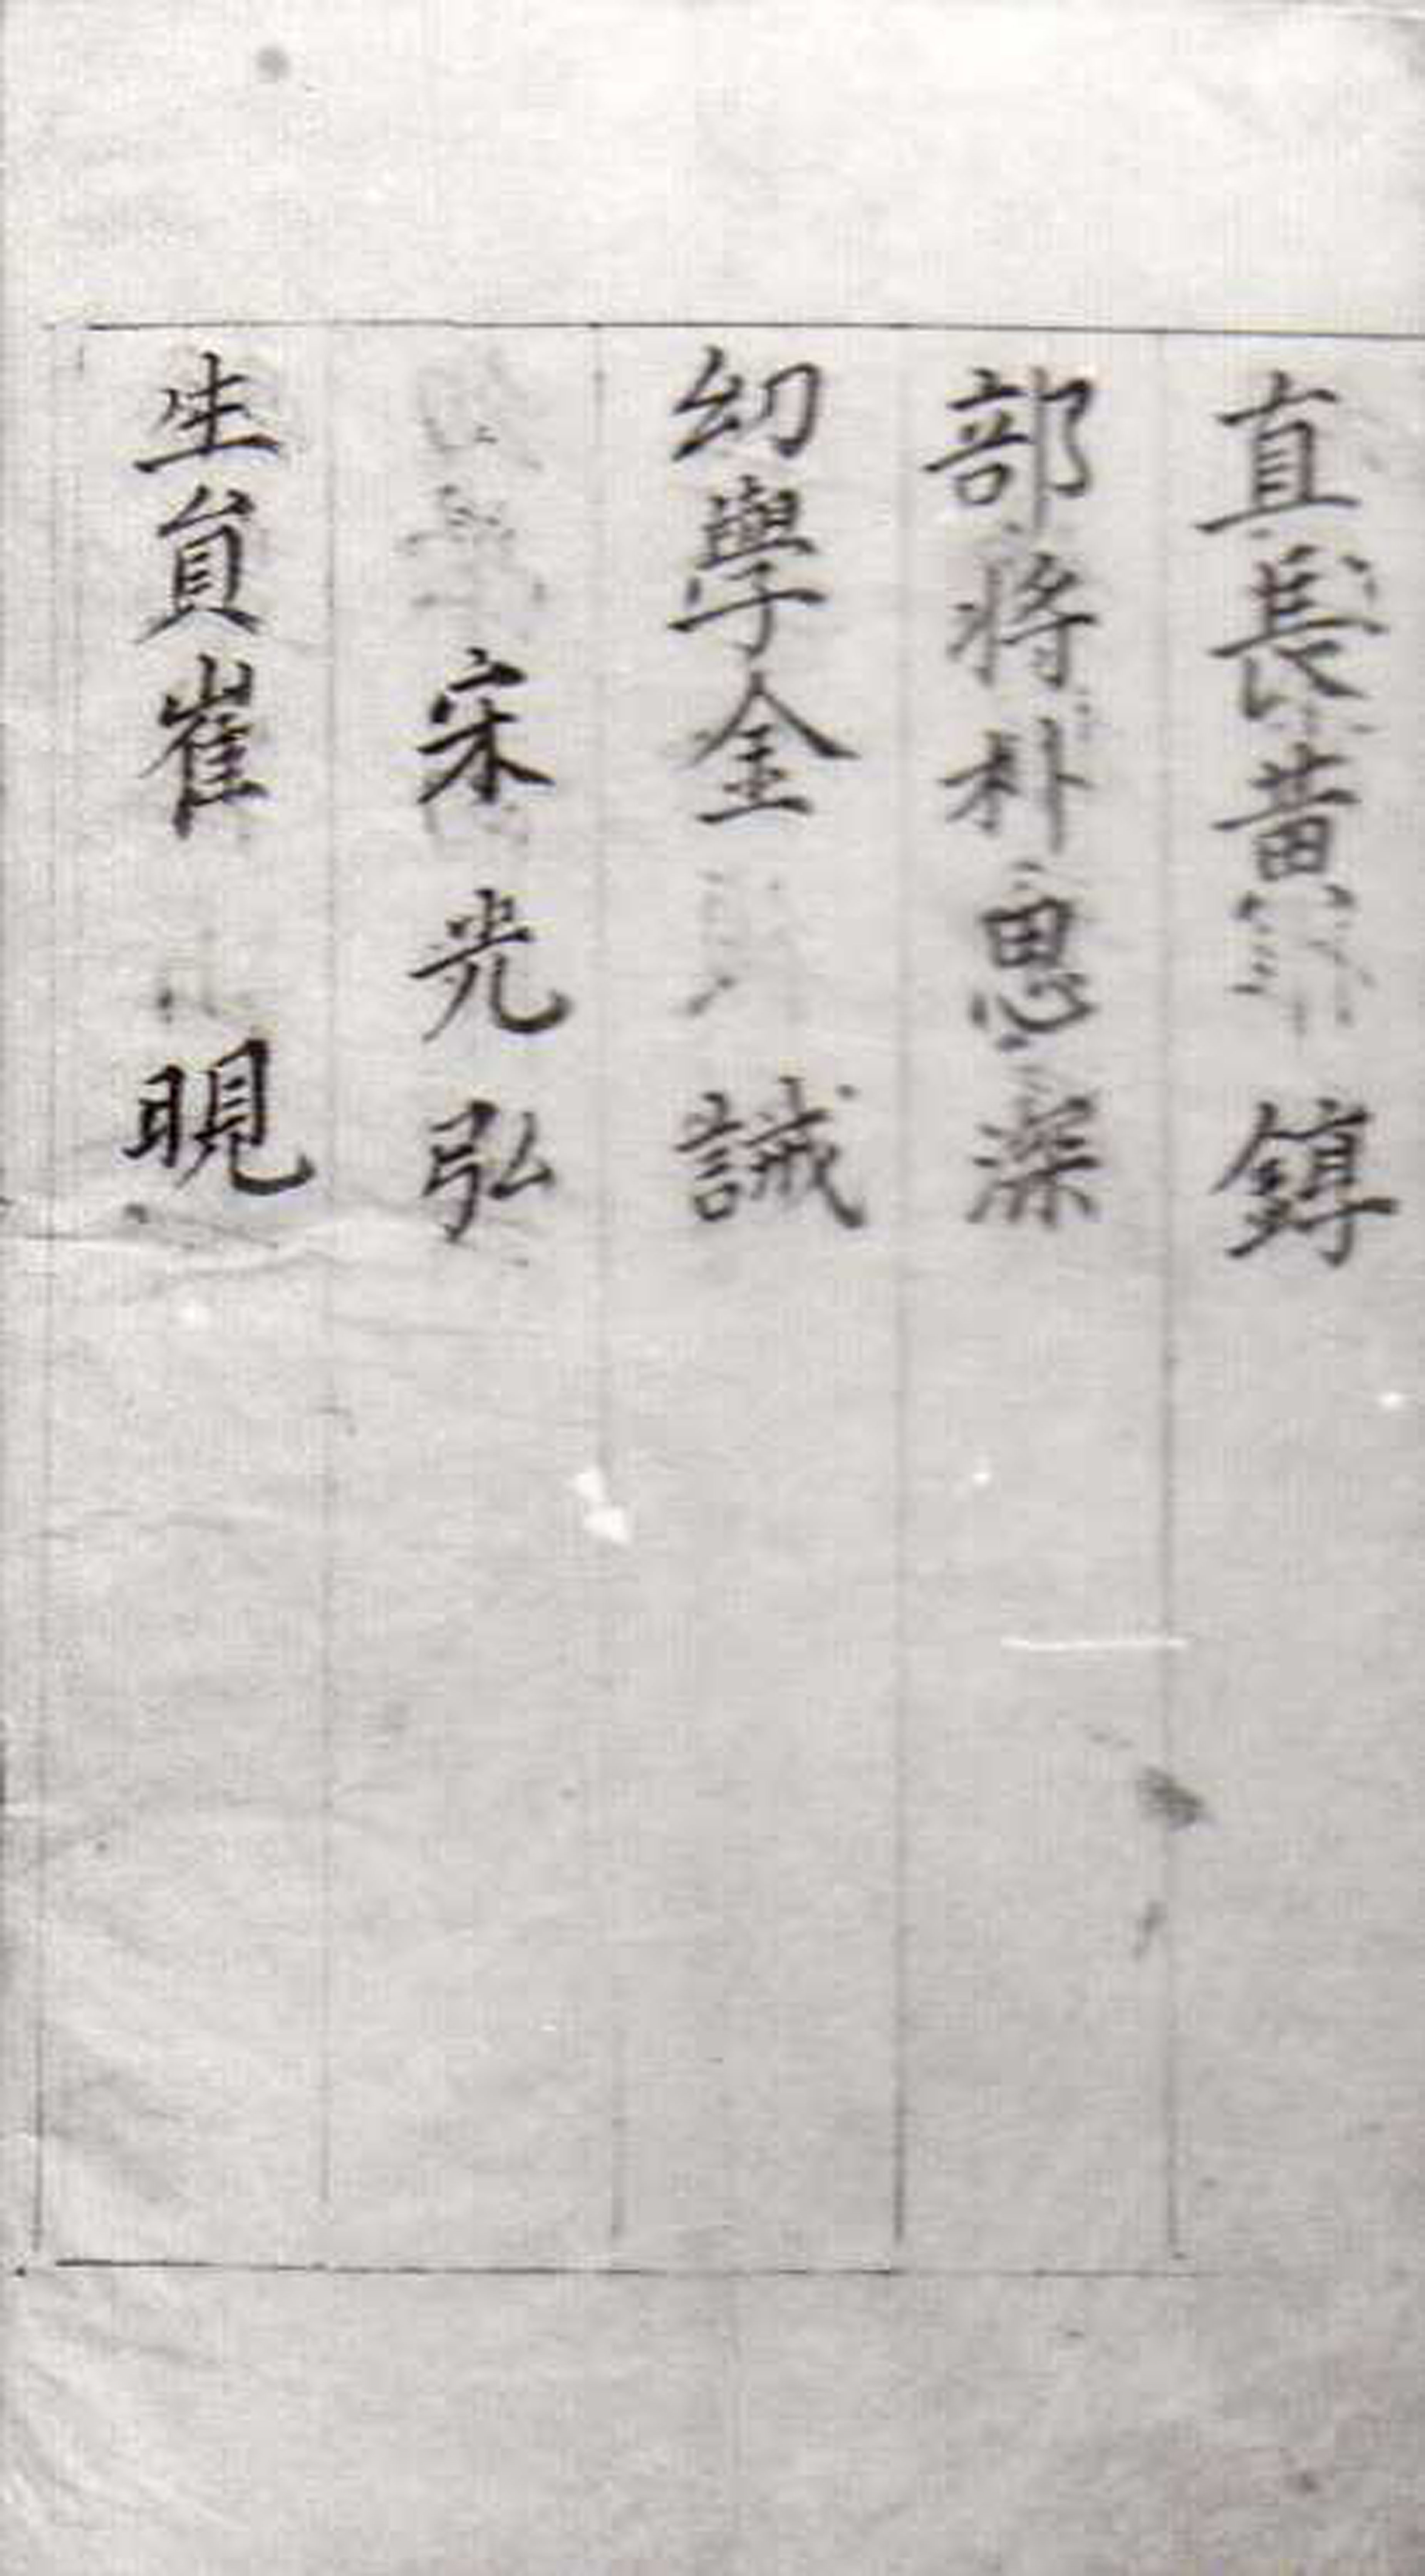 直長黃錞
部將朴思深
幼學金諴
宋光弘
生員崔晛